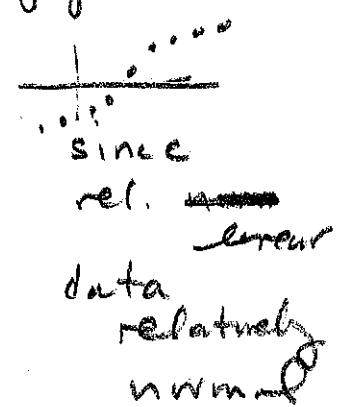 since
rel.
linear
data
relatively
normal